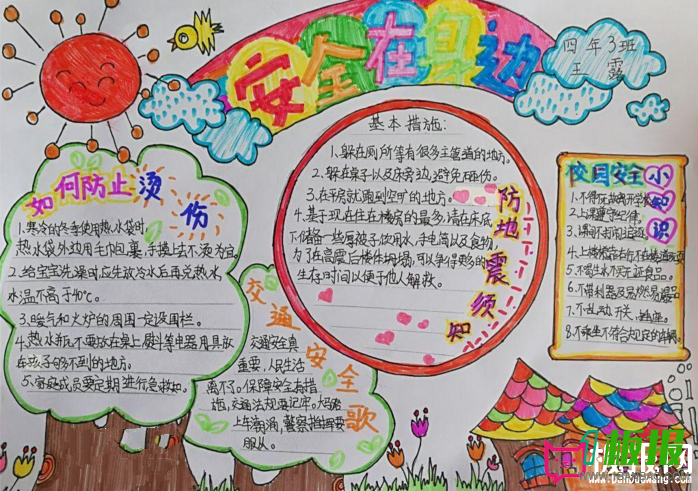 安全在身边
四年3班
王露
如何防止烫伤
1.寒冷的冬季使用热水袋时,
热水袋外边用毛巾包裹,手摸上去不烫为宜。
2.给宝宝洗澡时应先放冷水后再兑热水,
水温不高于40℃。
3.暖气和火炉的周围一定设围栏。
4.热水瓶不要放在桌上
等电器用具放
在孩子够不到的地方。
5.家庭成员要定期进行急救知
基本措施:
1.躲在厕所等有很多主管道的地方。
2.躲在桌子以及床旁边,避免砸伤。
3.在平房就跑到空旷的地方。
4.基于现在住在楼房的最多,请在床底
下储备一些厚被子饮用水,手电筒以及食物,
为了在高震后楼作坍塌,可以争得更多的
生存时间以便于他人解救。
防地震须知
校园安全小知识
2.上课遵守纪律。
3.课间不打闹追逐。
5.不喝生水不买三证食品。
7.不乱动开关,触电座。
8.不乘坐不符合规定的车辆。
交通安全歌
交通安全真
重要,人民生活
离不了。保障安全有措
施,交通法规要记牢。
上车
警察指挥要
服从。
板报网
www.banbaowang.com